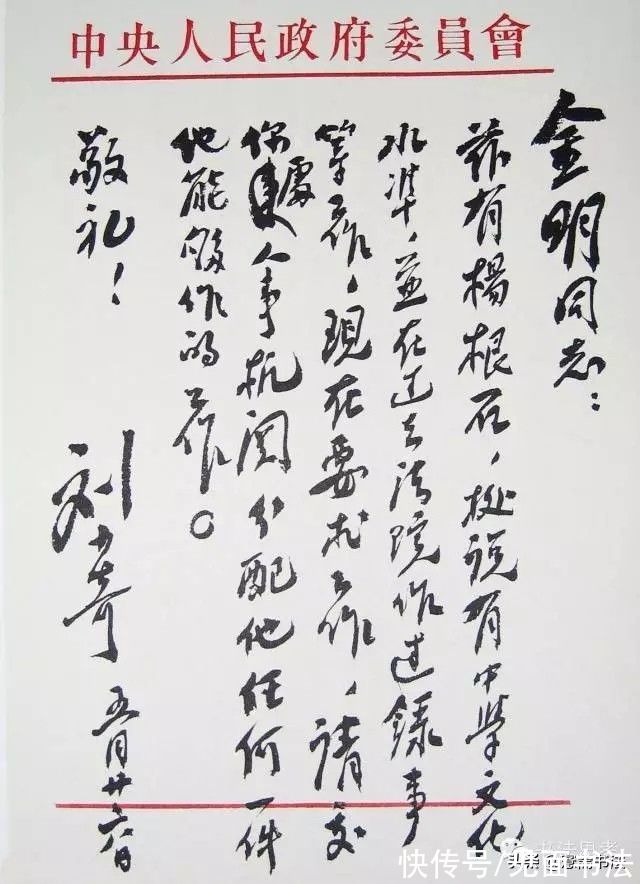 中央人民政府委員會
金明同志：
茲有楊根石，据説有中學文化
水準，並在过去法院作过錄事
等工作，現在要求工作，請交
你處人事机関分配他任何一件
他能够作的工作。
敬礼！
刘少奇 五月廿六日
快传号/见面书法